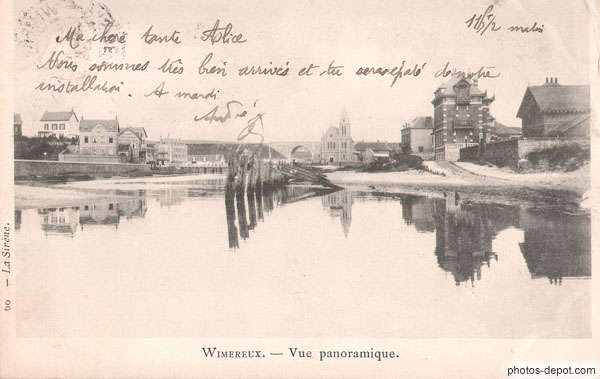 11 h 1/2 matin
Ma chère tante Alice
Nous sommes très bien arrivés et tu seras épaté de notre
installation. A mardi
André
60 — La Sirène.
WIMEREUX. — Vue panoramique.
photos-depot.com